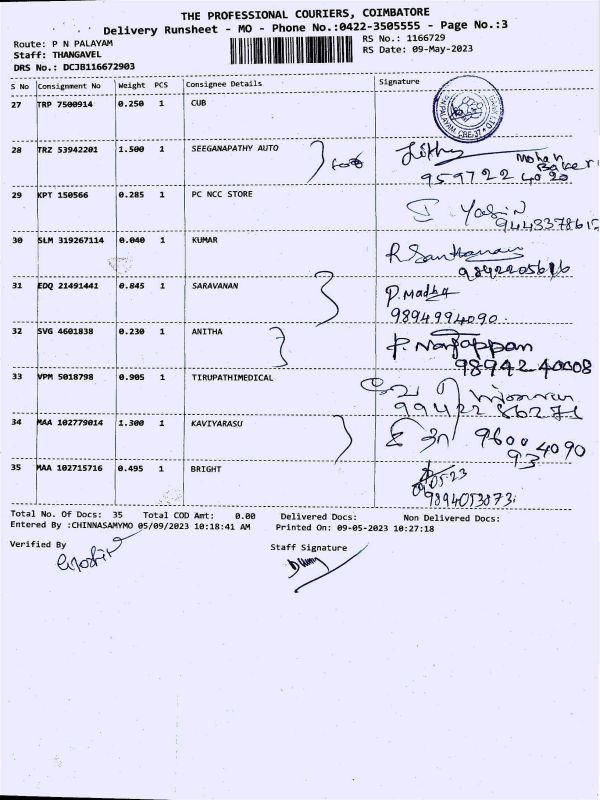 THE PROFESSIONAL COURIERS, COIMBATORE
Delivery Runsheet - MO - Phone No.:0422-3505555 - Page No.:3
Route: P N PALAYAM
RS No.: 1166729
Staff: THANGAVEL
RS Date: 09-May-2023
DRS No.: DCJB116672903
S No Consignment No Weight PCS Consignee Details Signature
27 TRP 7500914 0.250 1 CUB
28 TRZ 53942201 1.500 1 SEEGANAPATHY AUTO
Mohan
9597224020
29 KPT 150566 0.285 1 PC NCC STORE
Yasin
30 SLM 319267114 0.040 1 KUMAR
R Santhanam
31 EDQ 21491441 0.845 1 SARAVANAN
P. Madhu
9894994090.
32 SVG 4601838 0.230 1 ANITHA
P. Nanjappan
9894240008
33 VPM 5018798 0.905 1 TIRUPATHIMEDICAL
34 MAA 102779014 1.300 1 KAVIYARASU
9600 4090
93
35 MAA 102715716 0.495 1 BRIGHT
09.05.23
Total No. Of Docs: 35 Total COD Amt: 0.00 Delivered Docs: Non Delivered Docs:
Entered By :CHINNASAMYMO 05/09/2023 10:18:41 AM Printed On: 09-05-2023 10:27:18
Verified By
Staff Signature